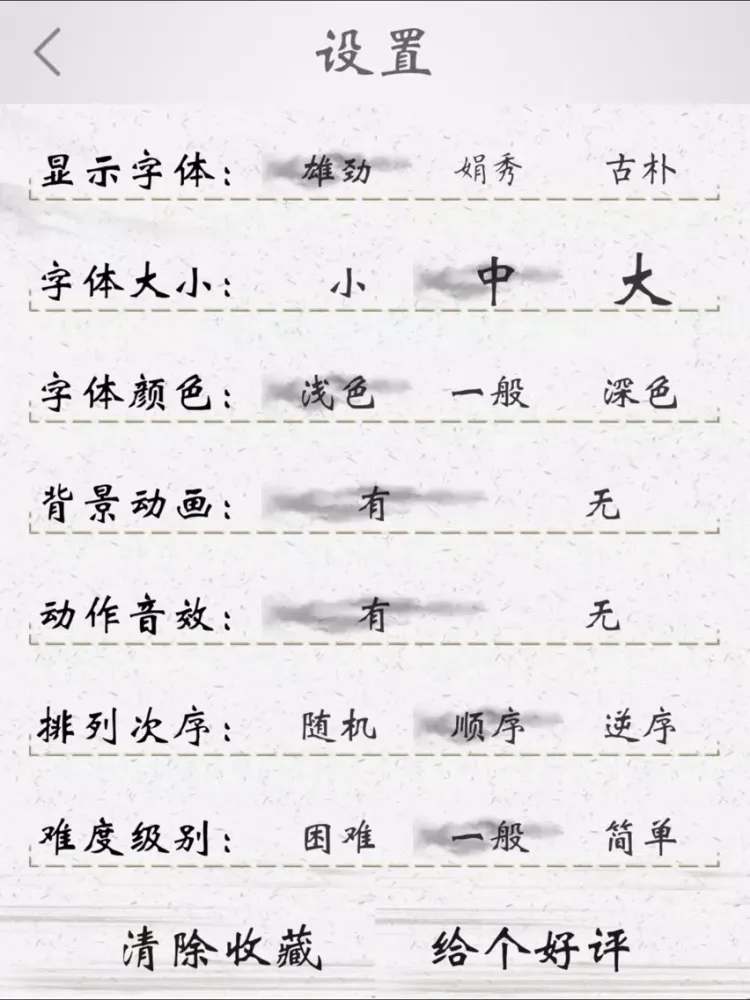 设置
显示字体： 雄劲 娟秀 古朴
字体大小： 小 中 大
字体颜色： 浅色 一般 深色
背景动画： 有 无
动作音效： 有 无
排列次序： 随机 顺序 逆序
难度级别： 困难 一般 简单
清除收藏 给个好评